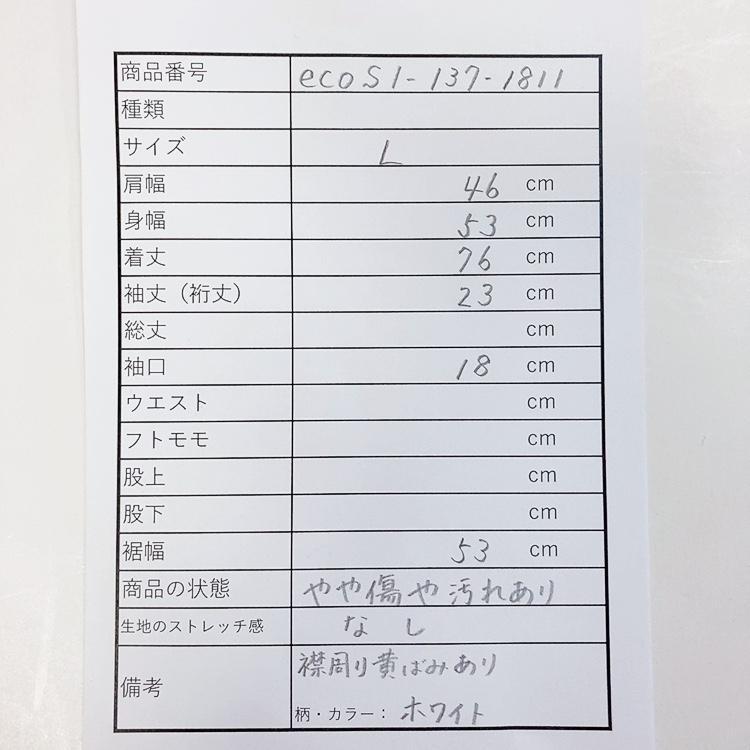 商品番号 ecoS1-137-1811
種類
サイズ L
肩幅 46 cm
身幅 53 cm
着丈 76 cm
袖丈（裄丈） 23 cm
総丈 cm
袖口 18 cm
ウエスト cm
フトモモ cm
股上 cm
股下 cm
裾幅 53 cm
商品の状態 やや傷や汚れあり
生地のストレッチ感 なし
備考 襟周り黄ばみあり
柄・カラー： ホワイト